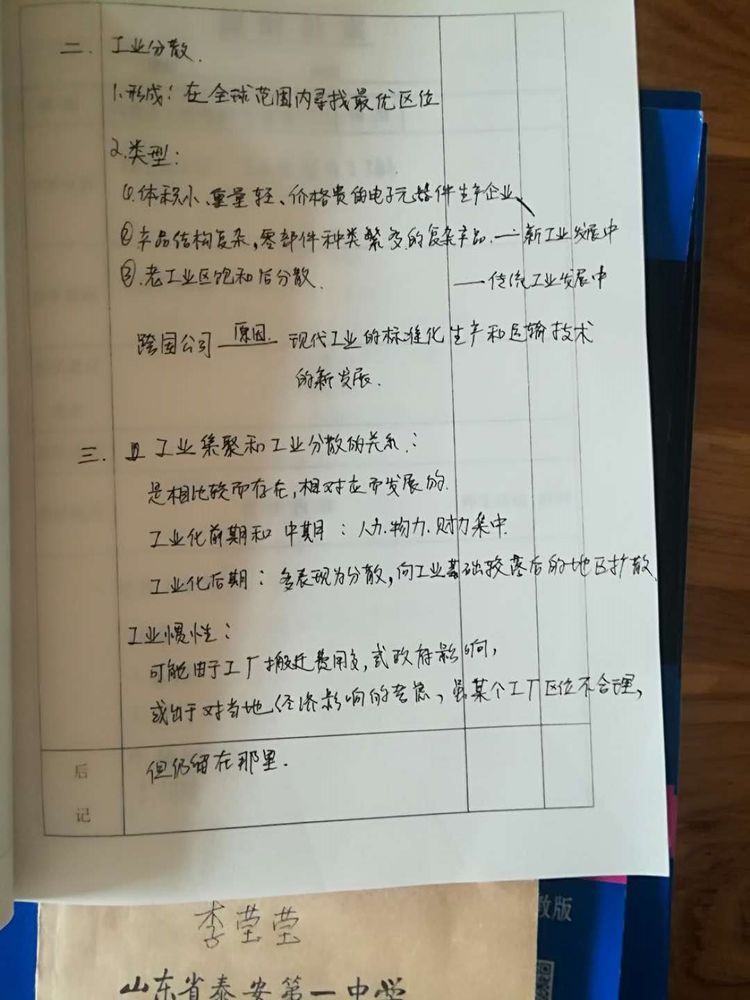 二. 工业分散.
1.形成: 在全球范围内寻找最优区位
2.类型:
①.体积小、重量轻、价格贵的电子元器件生产企业
②产品结构复杂,零部件种类繁多的复杂产品.——新工业发展中
③.老工业区饱和后分散. ——传统工业发展中
跨国公司 原因. 现代工业的标准化生产和运输技术
的新发展.
三. 工业集聚和工业分散的关系.:
是相比较而存在,相对应而发展的.
工业化前期和中期: 人力.物力.财力集中.
工业化后期: 多表现为分散,向工业基础较落后的地区扩散.
工业惯性:
可能由于工厂搬迁费用多,或政府影响,
或出于对当地经济影响的考虑,虽某个工厂区位不合理,
但仍留在那里.
后记
李莹莹
教版
山东省泰安第一中学